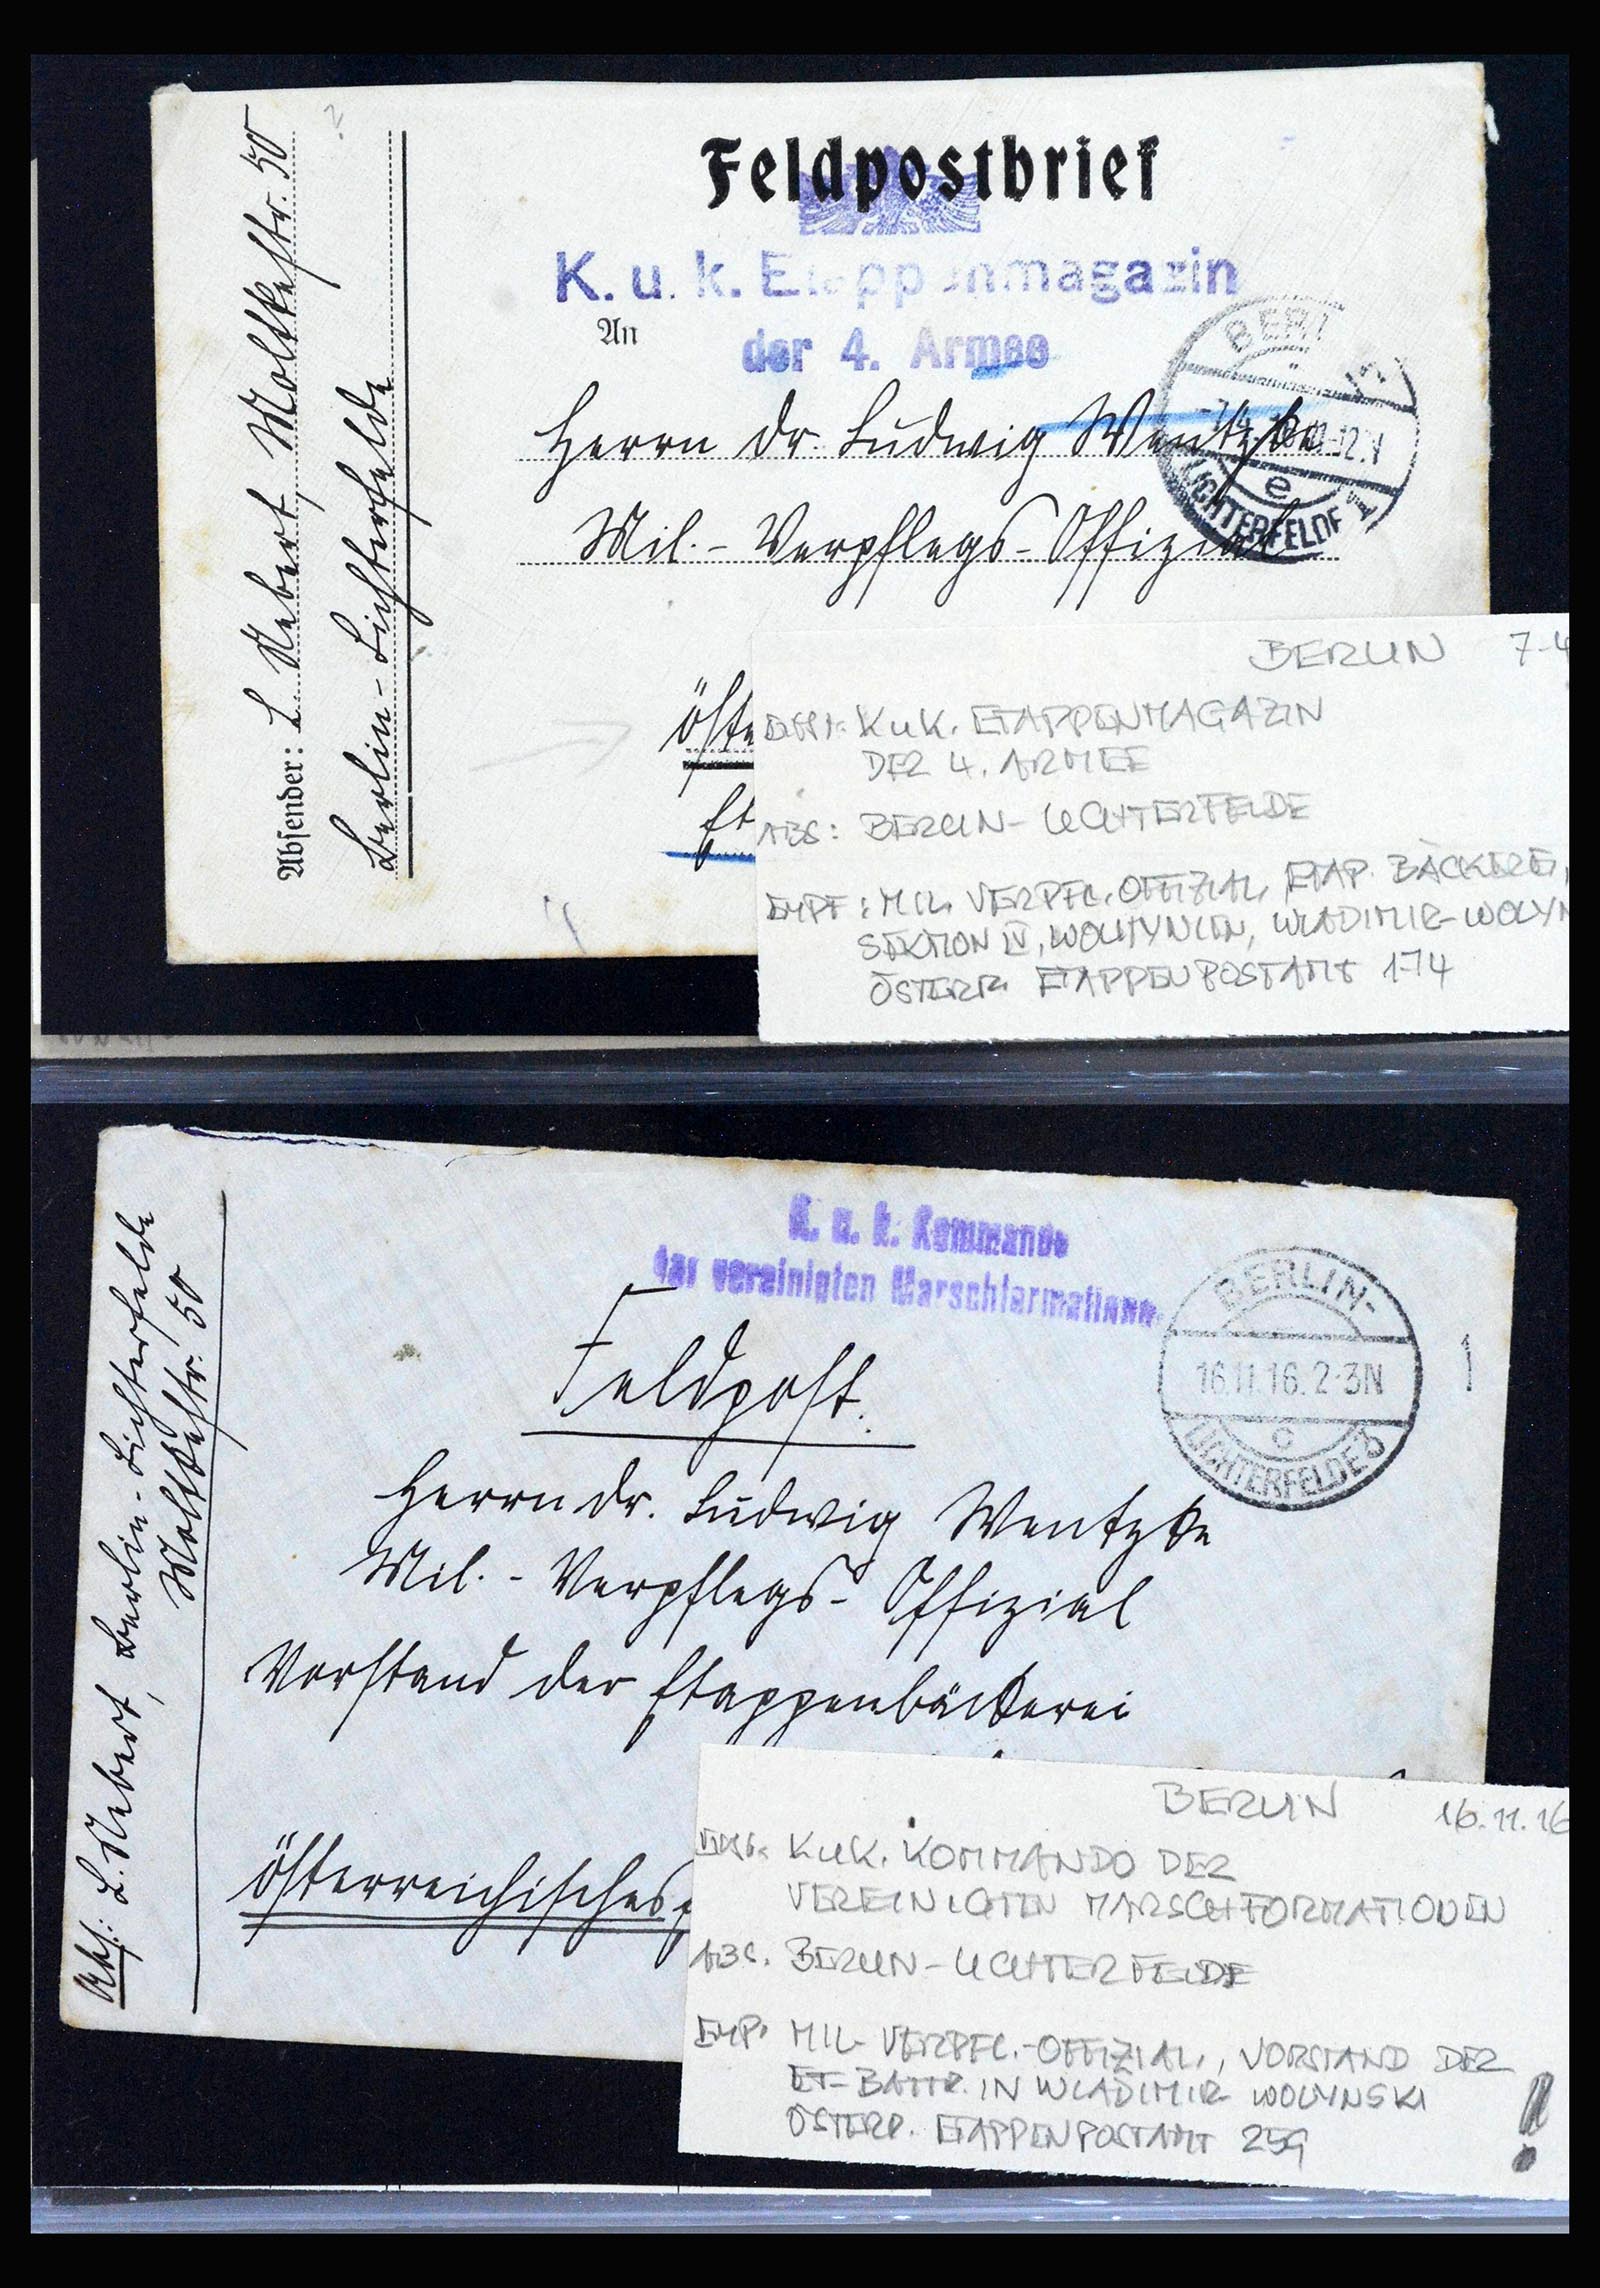 Feldpostbrief
K. u. k. Etappenmagazin
der 4. Armee
An
Herrn Dr. Ludwig Wentzke
Mil.-Verpflegs-Offizial
Öste
Et
Absender: L. Nebert, Moltkestr. 50
Berlin-Lichterfelde
BERL
LICHTERFELDE 1
e
BERLIN 7-4
KuK. ETAPPENMAGAZIN
DER 4. ARMEE
ABS: BERLIN-LICHTERFELDE
EMPF: MIL. VERPFL. OFFIZIAL, ETAP. BÄCKEREI,
SEKTION IV, WOLHYNIEN, WLADIMIR-WOLYN
ÖSTERR. ETAPPENPOSTAMT 174
K. u. k. Kommando
der vereinigten Marschformationen
Feldpost.
Herrn Dr. Ludwig Wentzke
Mil.-Verpflegs-Offizial
Vorstand der Etappenbäckerei
Österreichisches
Abs.: L. Nebert, Berlin-Lichterfelde
Moltkestr. 50
BERLIN-
16.11.16.2-3N
c
LICHTERFELDE 3
1
BERLIN 16.11.16
KuK. KOMMANDO DER
VEREINIGTEN MARSCHFORMATIONEN
ABS. BERLIN-LICHTERFELDE
EMP. MIL-VERPFL.-OFFIZIAL, VORSTAND DER
ET-BATTR. IN WLADIMIR WOLYNSKI
ÖSTERR. ETAPPENPOSTAMT 259
!